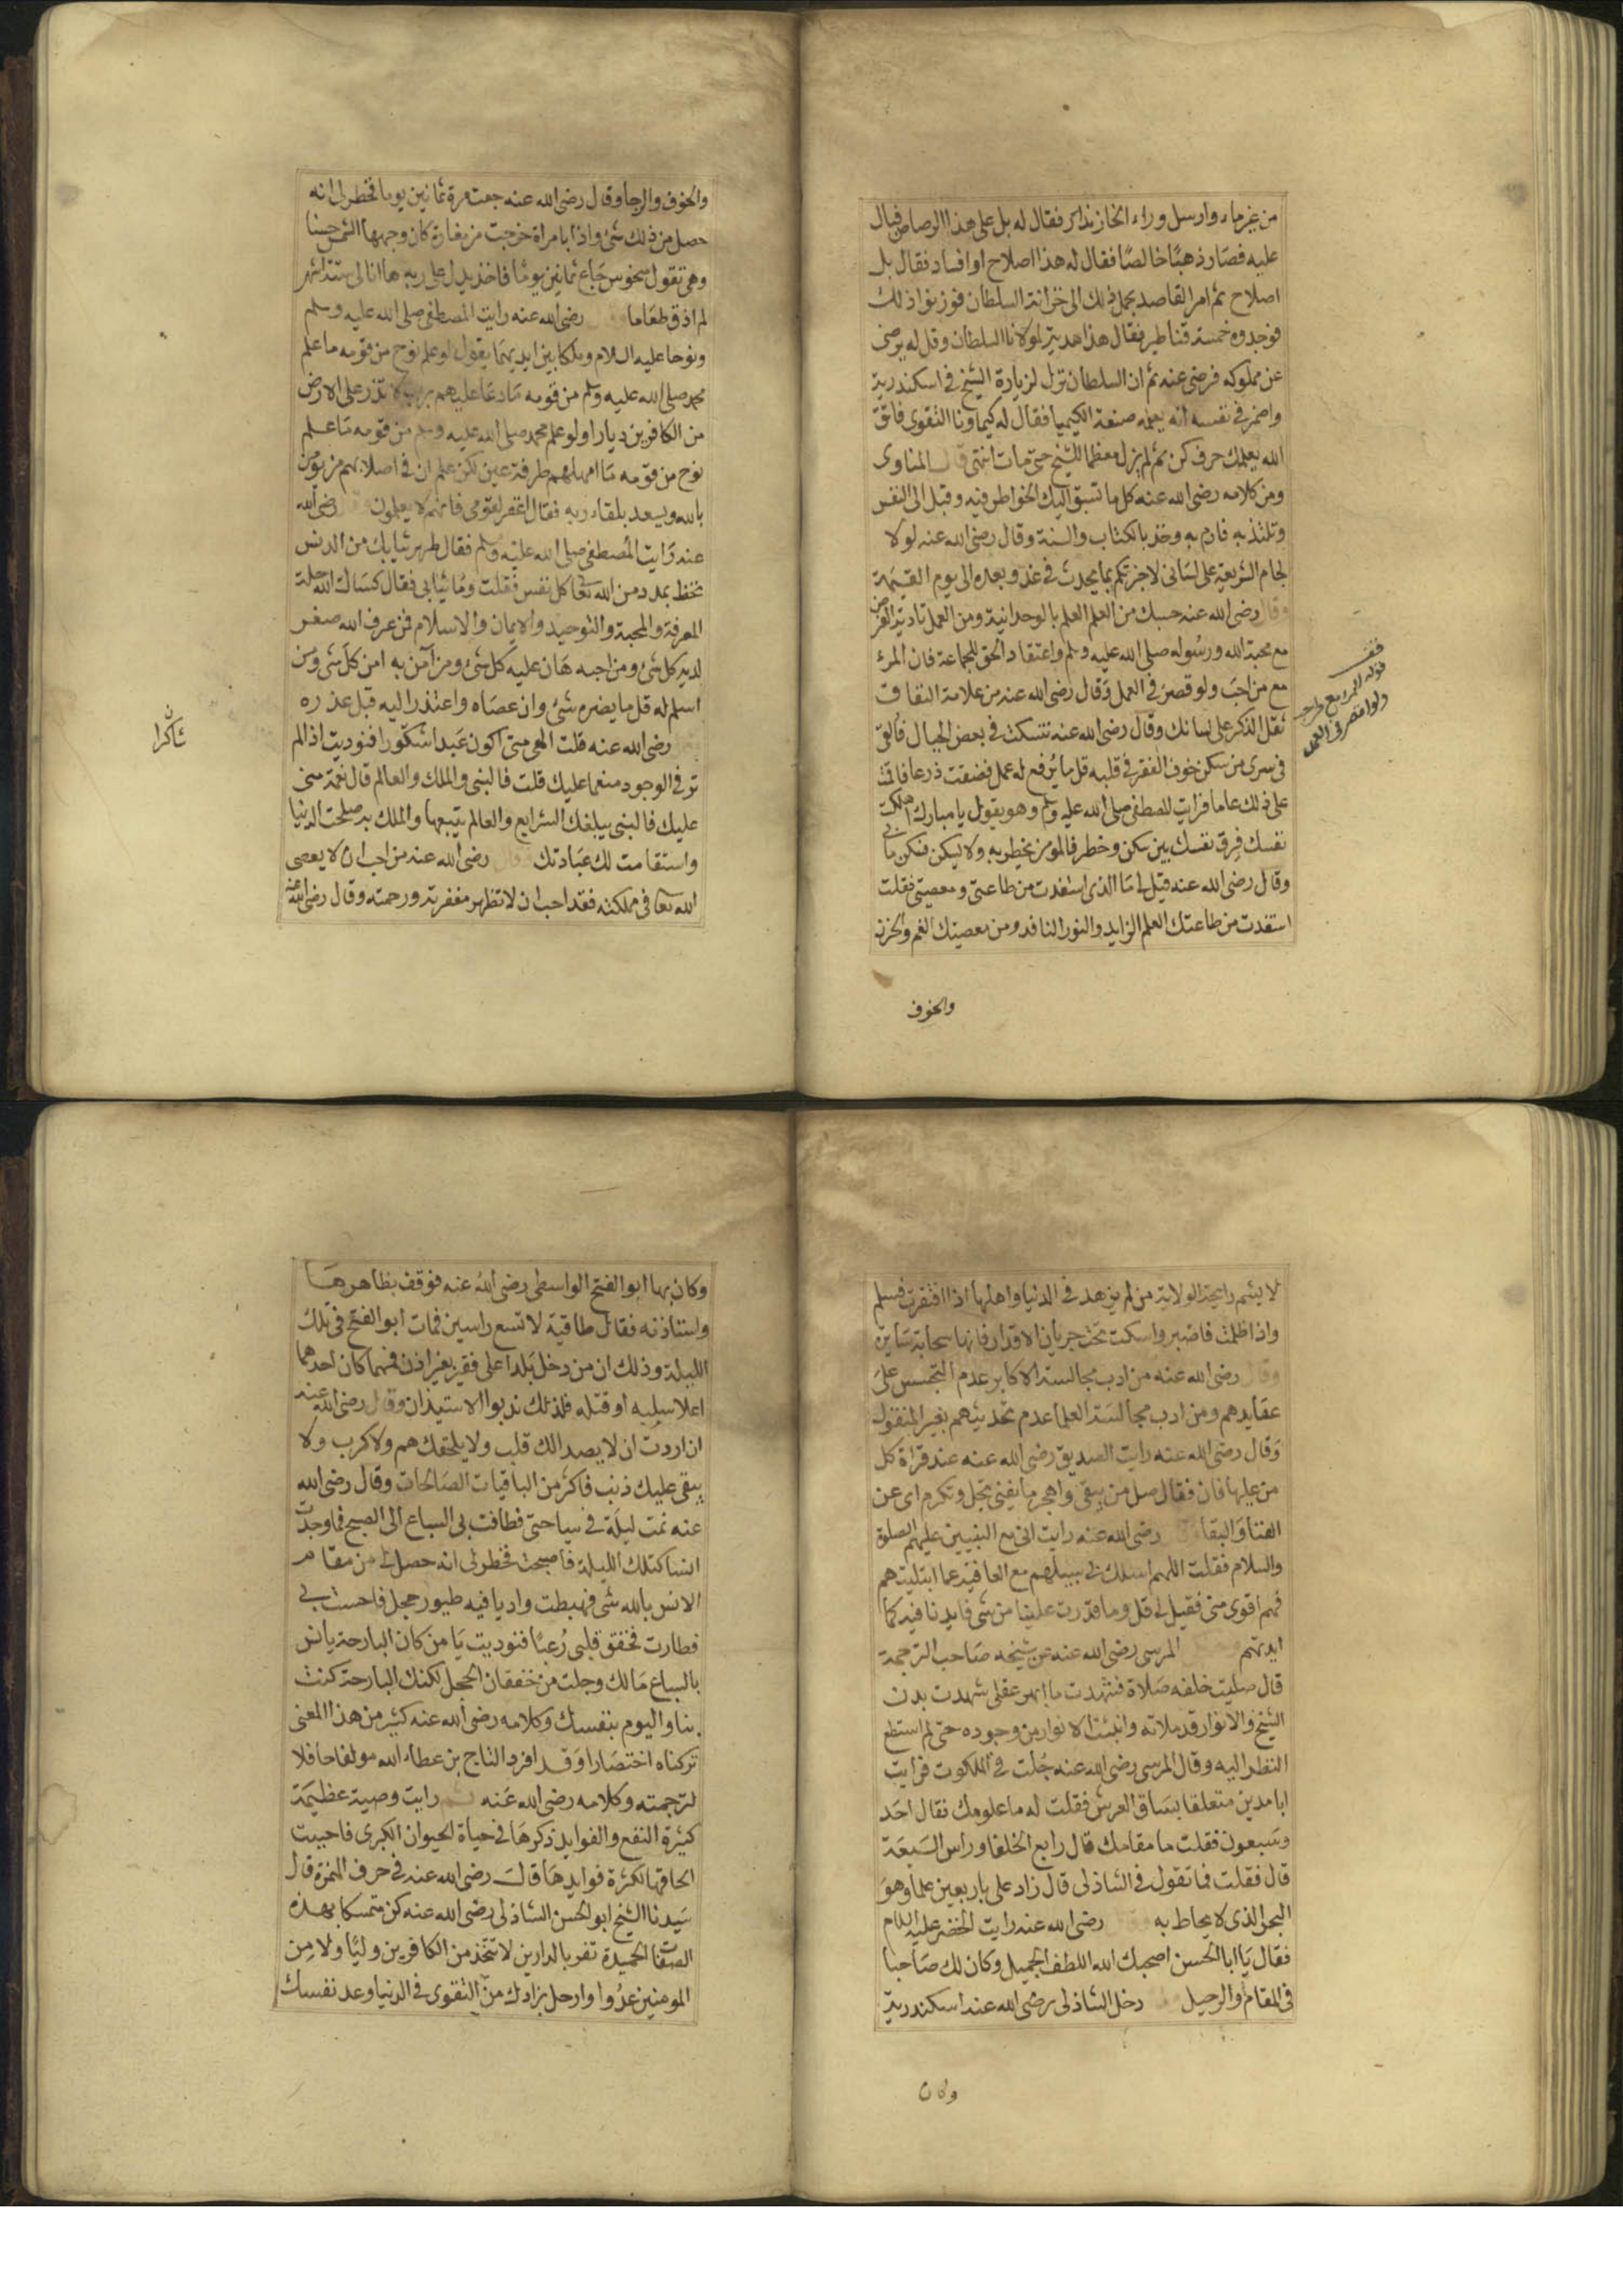 من غير ماء وارسل وراء الخازندار فقال له بل على هذا الرصاص فبال
عليه فصار ذهبًا خالصًا فقال له هذا اصلاح او افساد فقال بل
اصلاح ثم امر القاصد بحمل ذلك الى خزانة السلطان فوزنوا ذلك
فوجدوه خمسة قناطير فقال هذا هدية لمولانا السلطان وقل له يرضى
عن مملوكه فرضى عنه ثم ان السلطان نزل لزيارة الشيخ في اسكندرية
واضمر في نفسه انه يعلمه صنعة الكيميا فقال له كيماونا التقوى فاتق
الله يعلمك حرف كن ثم لم يزل معظما للشيخ حتى مات انتهى قال المناوى
ومن كلامه رضى الله عنه كل ما تسبق اليك الخواطر فيه وقبل الى النفس
وتلتذ به فارم به وخذ بالكتاب والسنة وقال رضى الله عنه لولا
لجام الشريعة على لسانى لاخبرتكم بما يحدث في غد وبعده الى يوم القيمة
وقال رضى الله عنه حسبك من العلم العلم بالوحدانية ومن العمل تادية الفرض
مع محبة الله ورسوله صلى الله عليه وسلم واعتقاد الحق للجماعة فان المرء
مع من احب ولو قصر في العمل وقال رضى الله عنه من علامة النفاق
ثقل الذكر على لسانك وقال رضى الله عنه تنسكت في بعض الجبال فالقى
في سرى من سكن خوف الفقر في قلبه قل ما يرفع له عمل فضقت ذرعا فاقمت
على ذلك عاما فرايت المصطفى صلى الله عليه وسلم وهو يقول يا مبارك اهلكت
نفسك فرق نفسك بين سكن وخطر فالمومن يخطر به ولا يسكن فسكن ما بى
وقال رضى الله عنه قيل لى ما الذى استفدت من طاعتى ومعصيتى فقلت
استفدت من طاعتك العلم الزايد والنور النافد ومن معصيتك الغم والحزن
والخوف
قف
قوله المرء مع من احب
ولو قصر في العمل
والخوف والرجا وقال رضى الله عنه جعت مرة ثمانين يوما فخطر لى انه
حصل من ذلك شئ واذا بامراة خرجت من مغارة كان وجهها الشمس حسنا
وهي تقول منحوس جاع ثمانين يوما فاخذ يدل على ربه ها انا لى ستة اشهر
لم اذق طعاما رضى الله عنه رايت المصطفى صلى الله عليه وسلم
ونوحا عليه السلام وملكا بين ايديهما يقول لو علم نوح من قومه ما علم
محمد صلى الله عليه وسلم من قومه ما دعا عليهم برب لا تذر على الارض
من الكافرين ديارا ولو علم محمد صلى الله عليه وسلم من قومه ما علم
نوح من قومه ما امهلهم طرفة عين لكن علم ان في اصلابهم من يومن
بالله ويسعد بلقاء ربه فقال اغفر لقومى فانهم لا يعلمون رضى الله
عنه رايت المصطفى صلى الله عليه وسلم فقال طهر ثيابك من الدنس
تحظ بمدد من الله تعا كل نفس فقلت وما ثيابى فقال كساك الله حلة
المعرفة والمحبة والتوحيد والايمان والاسلام فمن عرف الله صغر
لديه كل شئ ومن احبه هان عليه كل شئ ومن آمن به امن كل شئ ومن
اسلم له قل ما يضره شئ وان عصاه واعتذر اليه قبل عذره
رضى الله عنه قلت الهى متى اكون عبدا شكورا فنوديت اذا لم
تر في الوجود منعما عليك قلت فالنبى والملك والعالم قال نعمة منى
عليك فالنبى يبلغك الشرايع والعالم يتبعها والملك به صلحت الدنيا
واستقامت لك عبادتك رضى الله عنه من احب ان لا يعصى
الله تعا في مملكته فقد احب ان لا تظهر مغفرته ورحمته وقال رضى الله عنه
شاكرا
ن
لا يشم رايحة الولاية من لم يزهد في الدنيا واهلها اذا افتقرت فسلم
واذا ظلمت فاصبر واسكت تحت جريان الاقدار فانها سحابة سايرة
وقال رضى الله عنه من ادب مجالسة الاكابر عدم التجسس على
عقايدهم ومن ادب مجالسة العلما عدم تحديثهم بغير المنقول
وقال رضى الله عنه رايت الصديق رضى الله عنه عند قراة كل
من عليها فان فقال صل من يبقى واهجر ما يفنى تجل وتكرم اى عن
الفنا والبقا رضى الله عنه رايت انى مع النبيين عليهم الصلوة
والسلام فقلت اللهم اسلك بى سبيلهم مع العافية عما ابتليتهم
فهم اقوى منى فقيل لى قل وما قدرت علينا من شى فايدنا فيه كما
ايدتهم المرسى رضى الله عنه عن شيخه صاحب الترجمة
قال صليت خلفه صلاة فشهدت ما ابهر عقلى شهدت بدن
الشيخ والانوار قد ملاته وانبثت الانوار من وجوده حتى لم استطع
النظر اليه وقال المرسى رضى الله عنه جلت في الملكوت فرايت
ابا مدين متعلقا بساق العرش فقلت له ما علومك فقال احد
وسبعون فقلت ما مقامك قال رابع الخلفا وراس السبعة
قال فقلت فما تقول في الشاذلى قال زاد على باربعين علما وهو
البحر الذى لا يحاط به رضى الله عنه رايت الخضر عليه السلام
فقال يا ابا الحسن اصحبك الله اللطف الجميل وكان لك صاحبا
في المقام والرحيل دخل الشاذلى رضى الله عنه اسكندرية
وكان
وكان بها ابو الفتح الواسطى رضى الله عنه فوقف بظاهرها
واستاذنه فقال طاقية لا تسع راسين فمات ابو الفتح في تلك
الليلة وذلك ان من دخل بلدا على فقير بغير اذن فمهما كان احدهما
اعلا سلبه او قتله فلذلك ندبوا الاستيذان وقال رضى الله عنه
ان اردت ان لا يصدا لك قلب ولا يلحقك هم ولا كرب ولا
يبقى عليك ذنب فاكثر من الباقيات الصالحات وقال رضى الله
عنه نمت ليلة في سياحتى فطافت بى السباع الى الصبح فما وجدت
انسا كتلك الليلة فاصبحت فخطر لى انه حصل لى من مقام
الانس بالله شى فهبطت واديا فيه طيور حجل فاحست بى
فطارت فخفق قلبى رعبا فنوديت يا من كان البارحة يانس
بالسباع مالك وجلت من خفقان الحجل لكنك البارحة كنت
بنا واليوم بنفسك وكلامه رضى الله عنه كثير من هذا المعنى
تركناه اختصارا وقد افرد التاج بن عطاء الله مولفا حافلا
لترجمته وكلامه رضى الله عنه رايت وصية عظيمة
كثيرة النفع والفوايد ذكرها في حياة الحيوان الكبرى فاحببت
الحاقها لكثرة فوايدها قال رضى الله عنه في حرف الهمزة قال
سيدنا الشيخ ابو الحسن الشاذلى رضى الله عنه كن متمسكا بهذه
الصفات الحميدة تفز بالدارين لا تتخذ من الكافرين وليا ولا من
المومنين عدوا وارحل بزادك من التقوى في الدنيا وعد نفسك